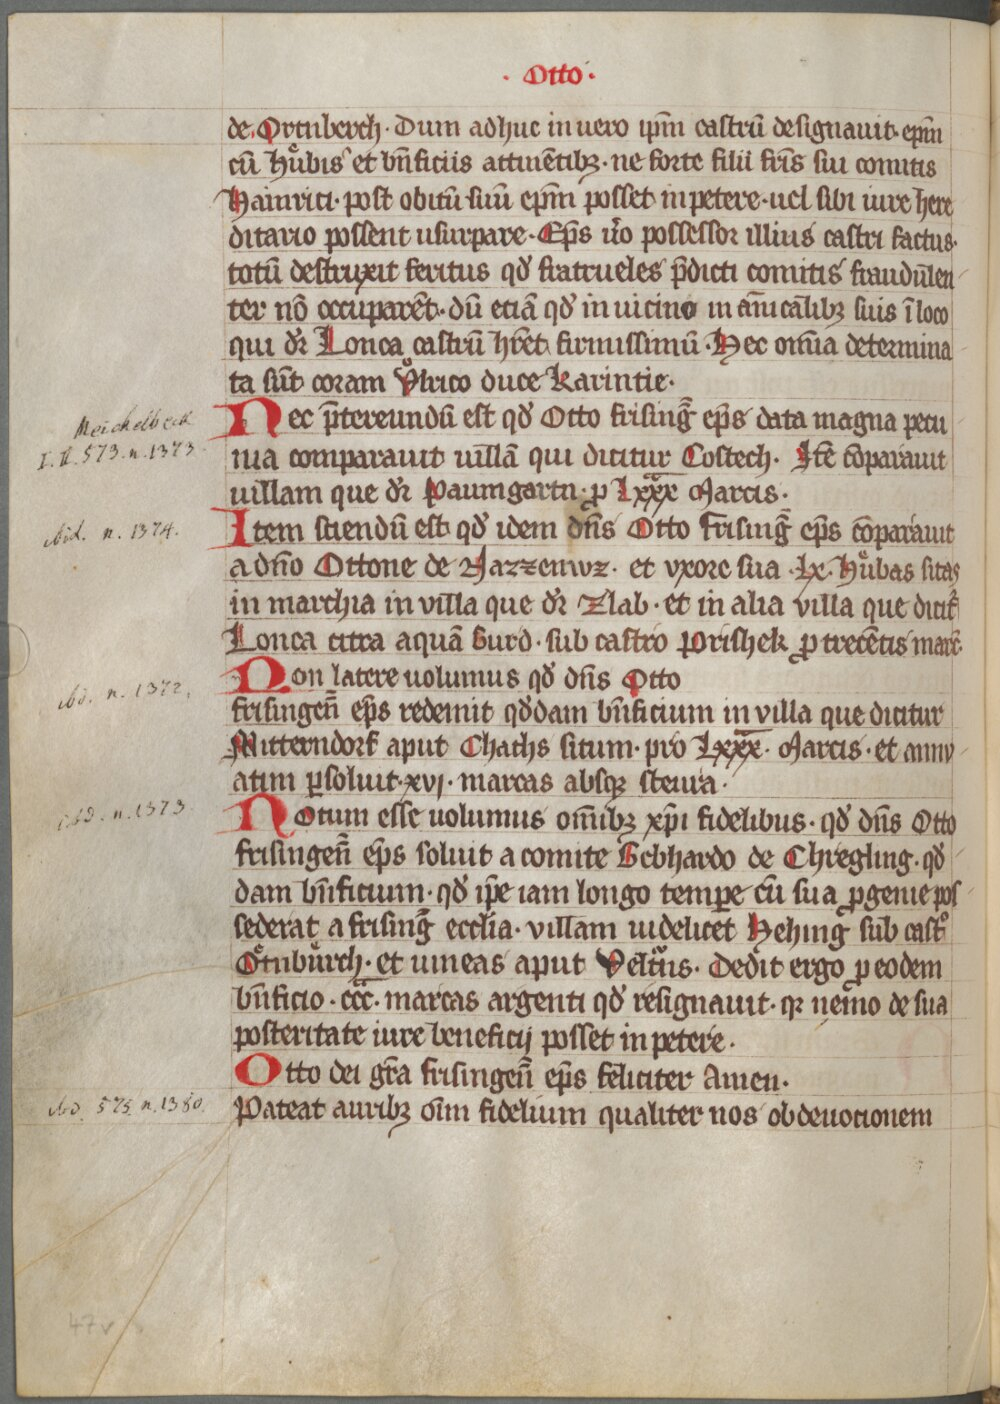 · Otto ·
de Ortnberch · Dum adhuc in uero ip̄m castrū designauit · ep̄m
cū hůbis et bn̄ficiis attinētibꝫ · ne forte filii fr̄is sui comitis
Hainrici · post obitū suū ep̄m posset inpetere · uel sibi iure here
ditario possent usurpare · Ep̄s u̓o possessor illius castri factus ·
totū destruxit feritus qd̓ fratrueles p̄dicti comitis fraudulen
ter nō occuparēt · dū etiā qd̓ in uicino in amicalibꝫ suis ī loco
qui dr̄ Lonca castrū hr̄et firmissimū · Hec om̄ia determina
ta sūt coram Vͦlrico duce Karintie ·
Nec p̄tereundū est qd̓ Otto frising̅ ep̄s data magna pecu
nia comparauit uillā qui dicitur Costech · Itē cōparauit
uillam que dr̄ Paumgartn · ꝑ Lxxx Marcis ·
Item sciendū est qd̓ idem dn̄s Otto frising̅ ep̄s cōparauit
a dn̄o Ottone de Nazzenwz · et vxore sua · Lx · Hůbas sitas
in marchia in villa que dr̄ Zlab · et in alia villa que dicit᷑
Lonca citra aquā Gurd · sub castro Prishek ꝑ trecētis marc̄ ·
Non latere uolumus qd̓ dn̄s Otto
frisingen̄ ep̄s redemit qd̓dam bn̄ficium in villa que dicitur
Mitterndorf aput Chachs situm · pro Lxxx · Marcis · et annu
atim ꝑsoluit · xvj · marcas absqꝫ steura ·
Notum esse uolumus om̄ibꝫ xp̄i fidelibus · qd̓ dn̄s Otto
frisingen̄ ep̄s soluit a comite Gebhardo de Chregling · qd̓
dam bn̄ficium · qd̓ ip̄e iam longo tempe cū sua ꝓgenie pos
sederat a frising̅ ecclia · villam uidelicet Hehing sub castͦ
Oͤtnbůrch · et uineas aput Veltůns · Dedit ergo ꝓ eodem
bn̄ficio · ccc · marcas argenti qd̓ resignauit · qꝛ nemo de sua
posteritate iure beneficij posset in petere ·
Otto dei gr̄a frisingen̄ ep̄s feliciter Amen ·
Pateat auribꝫ oīm fidelium qualiter nos ob deuotionem
Meichelbeck
I. II. 573. n. 1373.
ibid. n. 1374.
ibid. n. 1372.
ibid. n. 1373.
ibid. 575 n. 1380.
47v